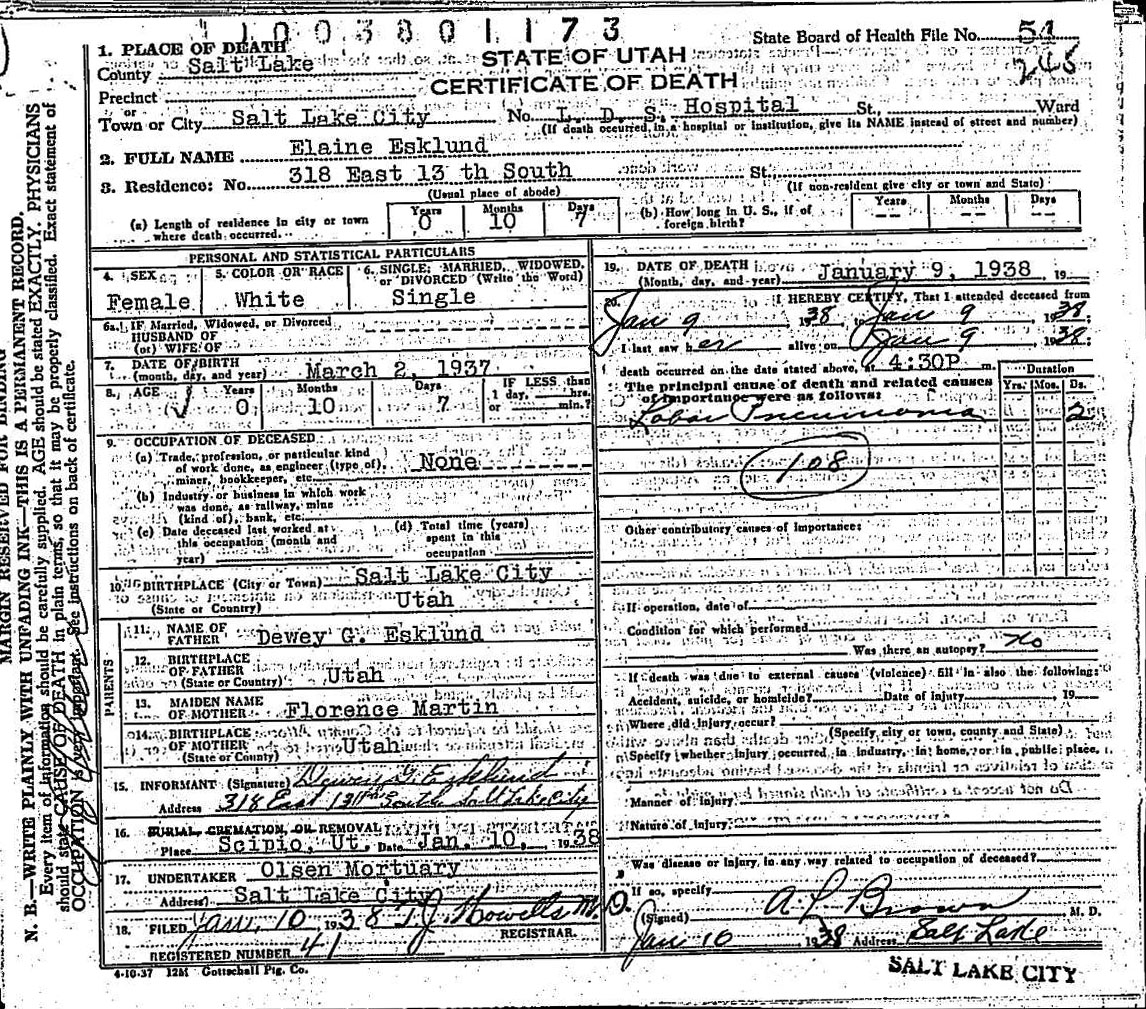 1003801173
State Board of Health File No. 51
246
STATE OF UTAH
CERTIFICATE OF DEATH
1. PLACE OF DEATH
County Salt Lake
Precinct
or
Town or City Salt Lake City No. L. D. S. Hospital St., Ward
(If death occurred in a hospital or institution, give its NAME instead of street and number)
2. FULL NAME Elaine Esklund
3. Residence: No. 318 East 13 th South St.
(Usual place of abode) (If non-resident give city or town and State)
(a) Length of residence in city or town where death occurred. Years 0 Months 10 Days 7
(b) How long in U. S., if of foreign birth? Years -- Months -- Days --
MARGIN RESERVED FOR BINDING
N. B.—WRITE PLAINLY WITH UNFADING INK—THIS IS A PERMANENT RECORD.
Every item of information should be carefully supplied. AGE should be stated EXACTLY. PHYSICIANS
should state CAUSE OF DEATH in plain terms, so that it may be properly classified. Exact statement of
OCCUPATION is very important. See instructions on back of certificate.
PERSONAL AND STATISTICAL PARTICULARS
4. SEX Female
5. COLOR OR RACE White
6. SINGLE, MARRIED, WIDOWED, or DIVORCED (Write the Word) Single
6a. IF Married, Widowed, or Divorced
HUSBAND OF
(or) WIFE OF
7. DATE OF BIRTH
(month, day, and year) March 2, 1937
8. AGE Years 0 Months 10 Days 7 IF LESS than 1 day, hrs. or min.?
9. OCCUPATION OF DECEASED
(a) Trade, profession, or particular kind
of work done, as engineer (type of), None
miner, bookkeeper, etc.
(b) Industry or business in which work
was done, as railway, mine
(kind of), bank, etc.
(c) Date deceased last worked at
this occupation (month and
year)
(d) Total time (years)
spent in this
occupation
10. BIRTHPLACE (City or Town) Salt Lake City
(State or Country) Utah
PARENTS
11. NAME OF
FATHER Dewey G. Esklund
12. BIRTHPLACE
OF FATHER Utah
(State or Country)
13. MAIDEN NAME
OF MOTHER Florence Martin
14. BIRTHPLACE
OF MOTHER Utah
(State or Country)
15. INFORMANT (Signature) Dewey G. Esklund
Address 318 East 13th South Salt Lake City
16. BURIAL, CREMATION, OR REMOVAL
Place Scipio, Ut. Date Jan. 10, 1938
17. UNDERTAKER Olsen Mortuary
Address Salt Lake City
18. FILED Jan. 10 1938 T.J. Howells M.D.
REGISTRAR.
REGISTERED NUMBER 41
4-10-37 12M Gottschall Ptg. Co.
19. DATE OF DEATH
(Month, day, and year) January 9, 1938 19
20. I HEREBY CERTIFY, That I attended deceased from
Jan 9 1938, to Jan 9 1938;
I last saw her alive on Jan 9 1938;
death occurred on the date stated above, at 4:30P m.
The principal cause of death and related causes
of importance were as follows:
Duration
Yrs. Mos. Ds.
Lobar Pneumonia 2
108
Other contributory causes of importance:
If operation, date of
Condition for which performed
Was there an autopsy? no
If death was due to external causes (violence) fill in also the following:
Accident, suicide, or homicide? Date of injury 19
Where did injury occur?
(Specify city or town, county and State)
Specify whether injury occurred in industry, in home, or in public place.
Manner of injury
Nature of injury
Was disease or injury in any way related to occupation of deceased?
If so, specify
(Signed) A L Brown M. D.
Jan 10 1938 Address Salt Lake
SALT LAKE CITY